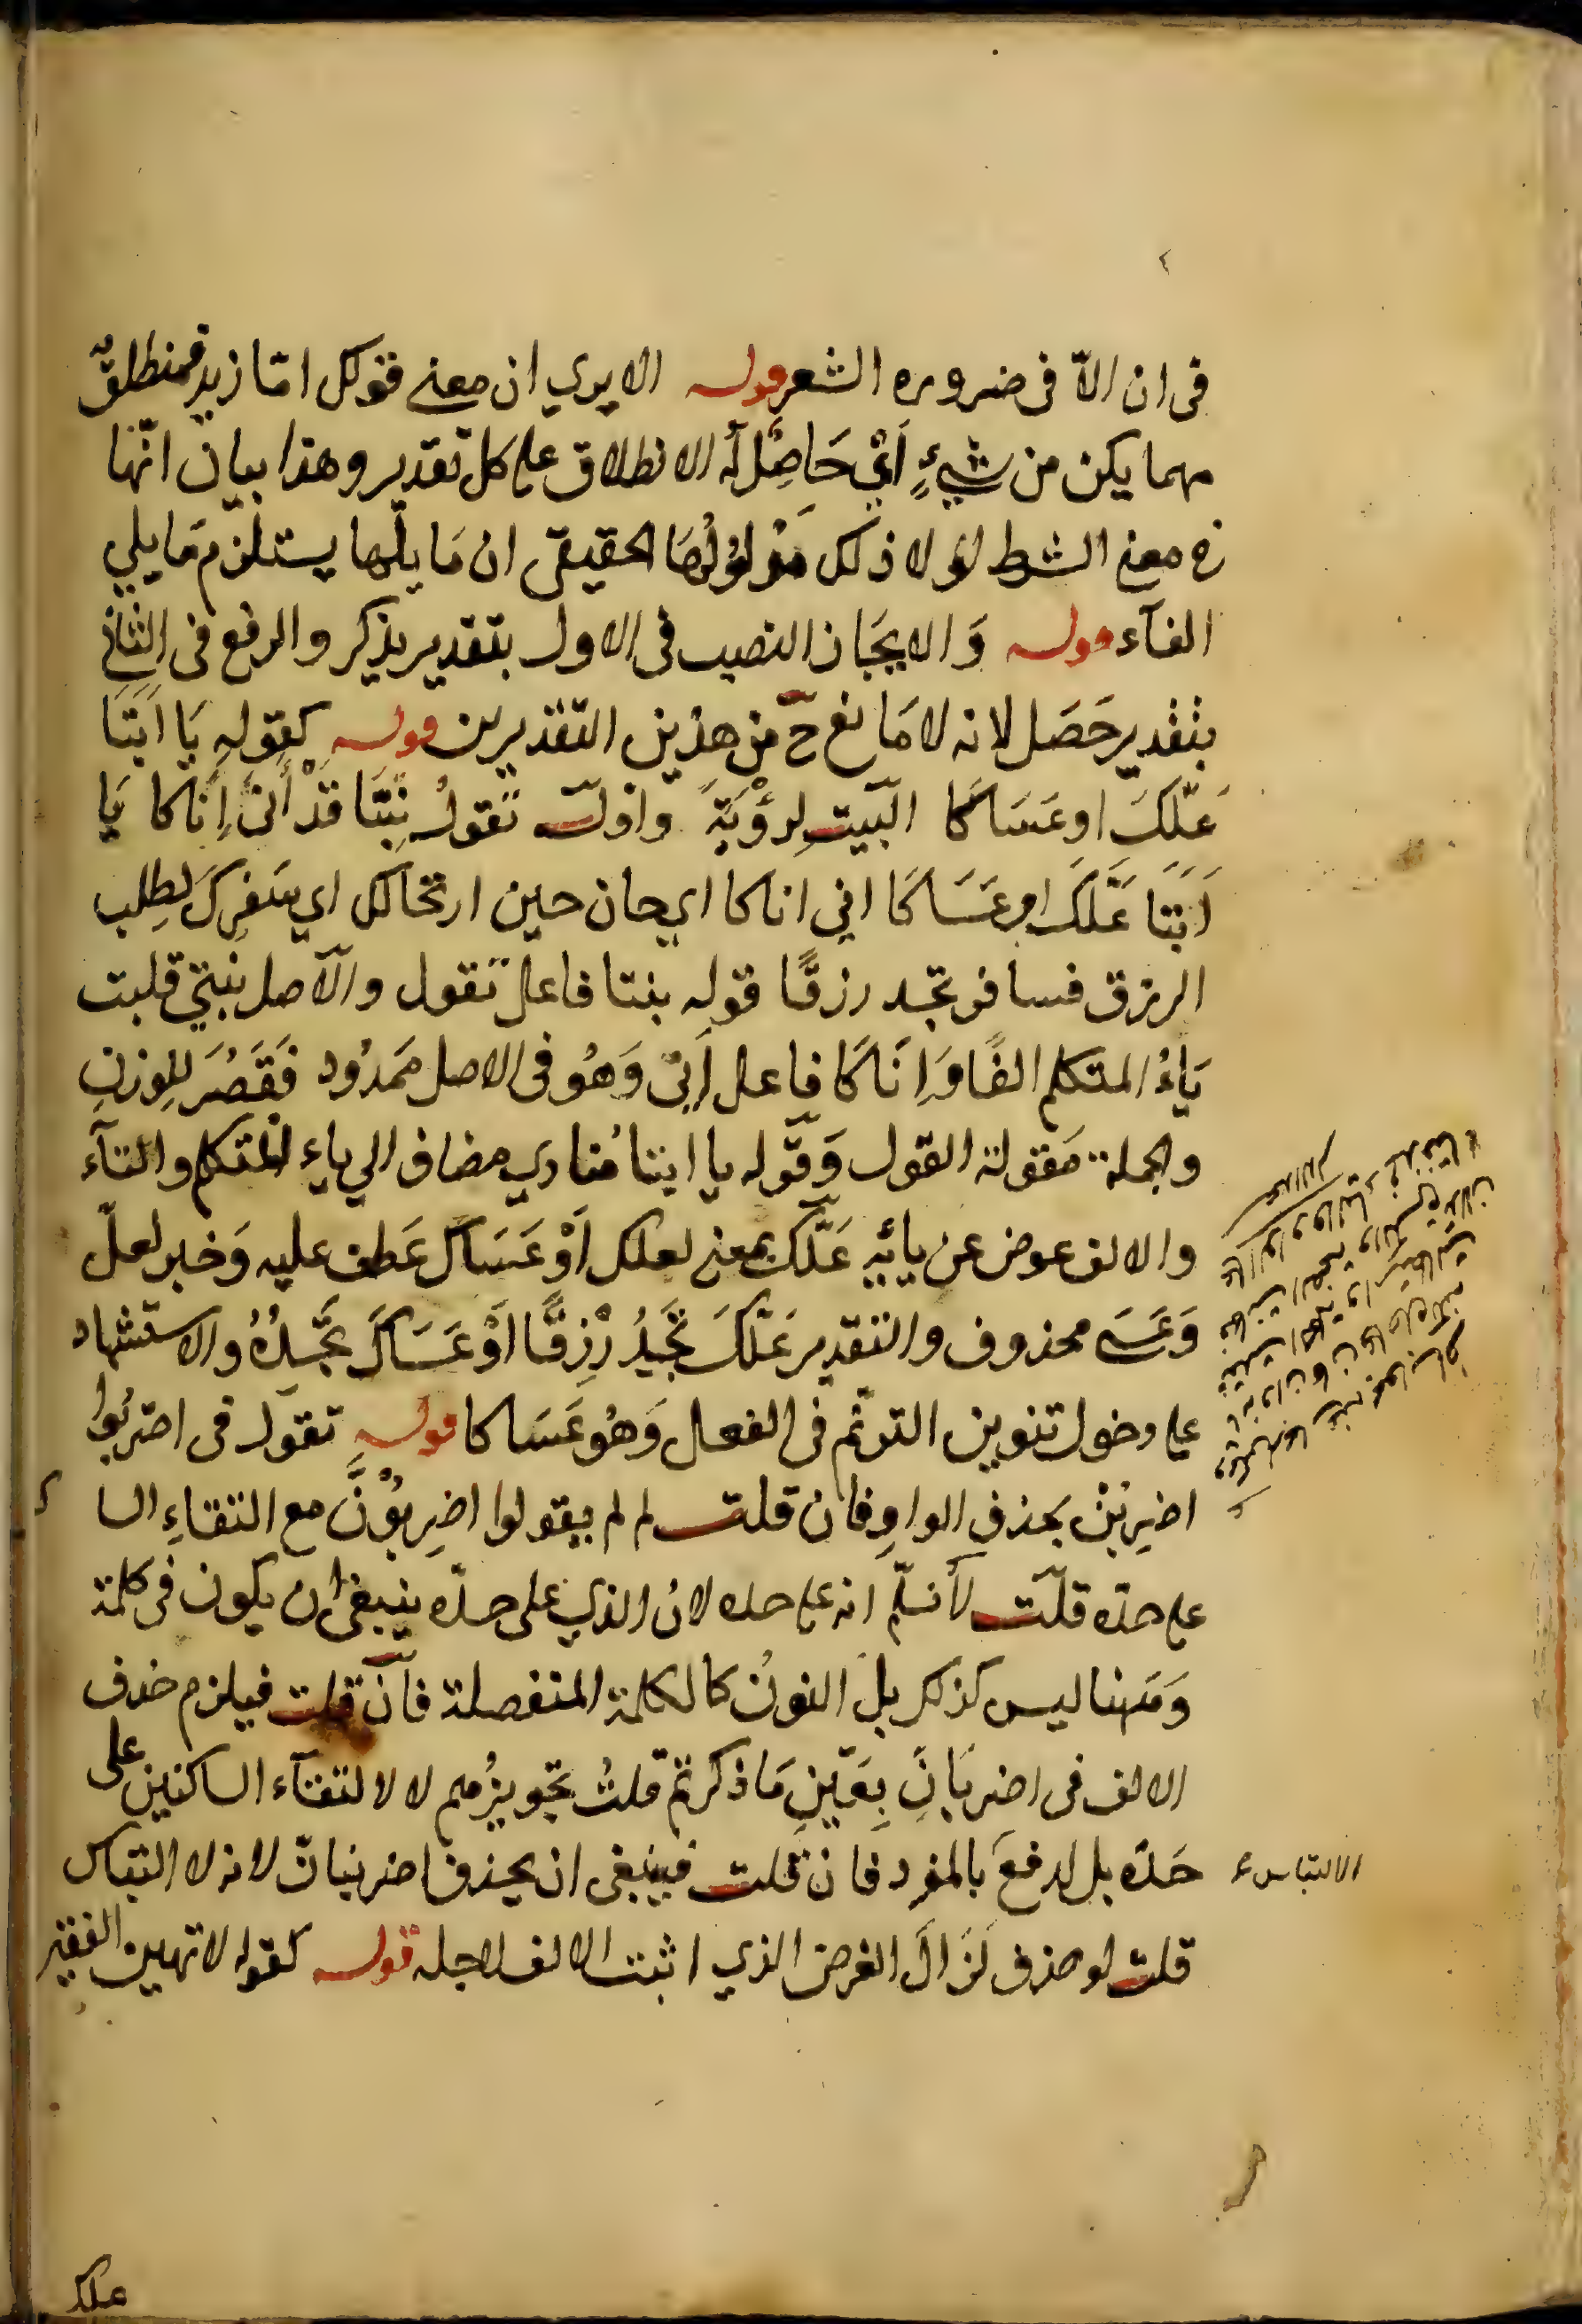 فى ان الاّ فى ضروره الشعر قوله الا يري ان معنى قولك امّا زيد فمنطلقٌ
مهما يكن من شيءٍ اَيْ حَاصِلٌ له الانطلاق على كل تقدير وهذا بيان انّها
فى معنى الشرط لولا ذلك مدلولُهَا الحقيقى ان مَا يليها يستلزم مَا يلي
الفآء قوله وَالا يجبَان النصب فى الاول بتقدير يذكر والرفع فى الثانى
بتقدير حَصَل لانه لا مَانع ح من هذين التقديرين قوله كقوله يَا اَبَتَا
عَلّكَ او عَسَاكَا البَيت لِرُؤْبَةَ واوله تَقولُ بِنْتَا قَدْ أَنَى إِنَاكا يَا
اَبَتَا عَلَّكَ او عَسَاكَا انى اناكا اي حان حين ارتحالك اي سَفرِكَ لطلب
الرزق فسافر تجد رزقًا قوله بنتا فاعل تقول والاصل بنتي قلبت
يَاءُ المتكلم الفًا وَإنَاكَا فاعل أنى وَهُو فى الاصل ممَدُود فَقَصُرَ للوزن
والجملة مَقولة القول وَقوله يا ابتا مُنادي مضاف الي ياء المتكلم والتآء
والالف عوض عن يائه عَلّكَ بمعنى لعلك اَوْ عَسَاكَ عَطف عليه وَخبر لعلّ
وَعَسَى محذوف والتقدير عَلّكَ تَجِدُ رِزقًا اَوْ عَسَاكَ تَجِدُهُ والاستشهاد
على دخول تنوين الترنّم فى الفعل وَهُو عَسَاكا قوله تقول فى اضربُوا
اضرِبُنَّ بحذف الواو فان قلت لم لم يقولوا اضرِبُوْنَّ مع التقاءِ السا
على حدّه قلت لا نسلّم انه على حده لان الذي على حدّه ينبغى ان يكون فى كلمة
وَههنا ليس كذلك بل النونُ كالكلمة المنفصلة فان قلت فيلزم حذف
الالف فى اضربَانِ بِعَينِ مَا ذكرتم قلتُ تجويزُهم لا لالتقآء الساكنين على
حَدّه بل لدفع بالمفرد فان قلت فينبغى ان يحذف اضربنانّ لانه لا التباس
الالتباس
قلت لو حذف لَزَالَ الغرض الذي اثبت الالف لاجله قوله كقوله لا تهين الفقير
علك